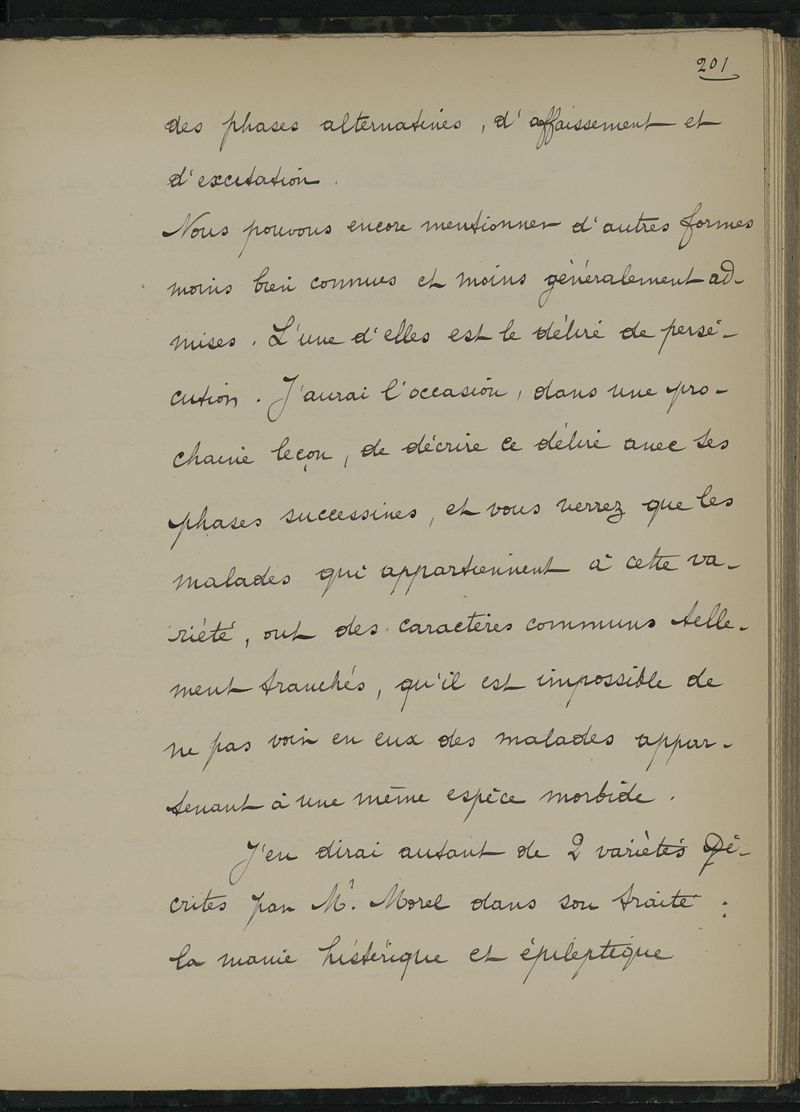 201
des phases alternatives, d'affaissement et
d'excitation.
Nous pouvons encore mentionner d'autres formes
moins bien connues et moins généralement ad-
mises. L'une d'elles est le délire de persé-
cution. J'aurai l'occasion, dans une pro-
chaine leçon, de décrire ce délire avec ses
phases successives, et vous verrez que les
malades qui appartiennent à cette va-
riété, ont des caractères communs telle-
ment tranchés, qu'il est impossible de
ne pas voir en eux des malades appar-
tenant à une même espèce morbide.
J'en dirai autant de 2 variétés dé-
crites par Mr. Morel dans son traité :
la manie histérique et épileptique